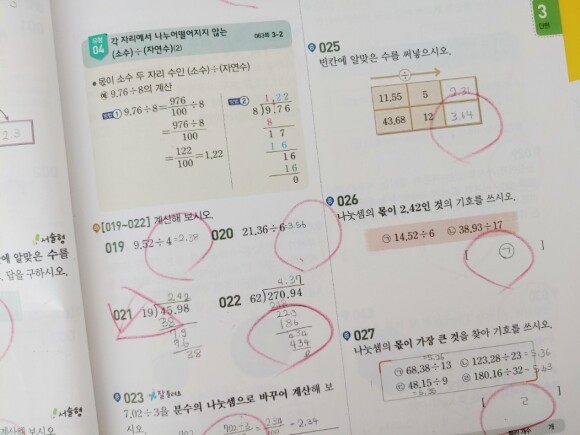 유형 04 각 자리에서 나누어떨어지지 않는
(소수)÷(자연수)(2)
063쪽 3-2
• 몫이 소수 두 자리 수인 (소수)÷(자연수)
예 9.76÷8의 계산
방법 1 9.76÷8=976/100÷8
=976÷8/100
=122/100=1.22
방법 2
1.22
8)9.76
8
17
16
16
16
0
[019~022] 계산해 보시오.
019 9.52÷4=2.38
020 21.36÷6=3.56
021
242
19)45.98
38
79
76
38
022
4.37
62)270.94
186
434
434
023 잘 틀려요
7.02÷3을 분수의 나눗셈으로 바꾸어 계산해 보
시오.
702÷3
100
= 2.34
서술형
에 알맞은 수를
답을 구하시오.
2.3
서술형
계산해 보시오
3
단원
025
빈칸에 알맞은 수를 써넣으시오.
÷
11.55 5 2.31
43.68 12 3.64
026
나눗셈의 몫이 2.42인 것의 기호를 쓰시오.
㉠ 14.52÷6 ㉡ 38.93÷17
[ ㉠ ]
027
나눗셈의 몫이 가장 큰 것을 찾아 기호를 쓰시오.
㉠ 68.38÷13 ㉡ 123.28÷23
㉢ 48.15÷9 ㉣ 180.16÷32